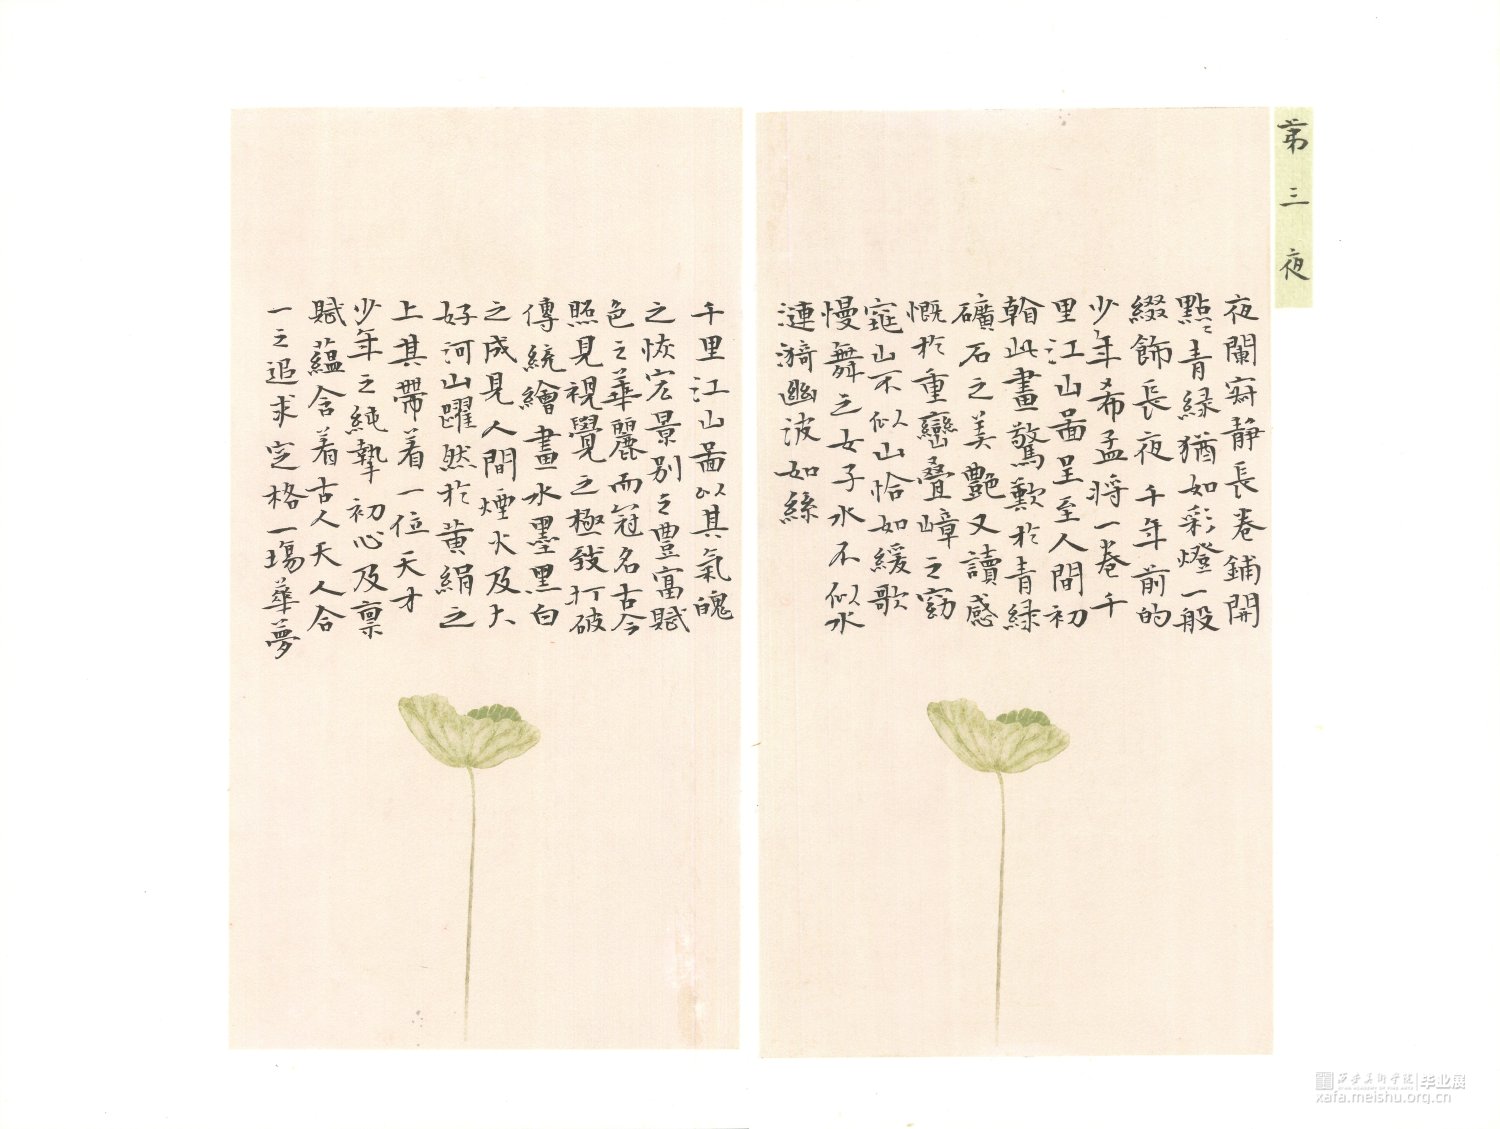 第三夜
夜闌寂靜長卷鋪開
點點青緑猶如彩燈一般
綴飾長夜千年前的
少年希孟将一卷千
里江山圖呈至人間初
翰此畫驚歎於青緑
礦石之美艷又讀感
慨於重巒疊嶂之窈
窕山不似山恰如緩歌
慢舞之女子水不似水
漣漪幽波如絲
千里江山圖以其氣魄
之恢宏景别之豐富賦
色之華麗而冠名古今
照見視覺之極致打破
傳統繪畫水墨黑白
之成見人間煙火及大
好河山躍然於黄絹之
上其帶着一位天才
少年之純摯初心及稟
賦蘊含着古人天人合
一之追求定格一場華夢
西安美術學院 毕业展
XI'AN ACADEMY OF FINE ARTS
xafa.meishu.org.cn